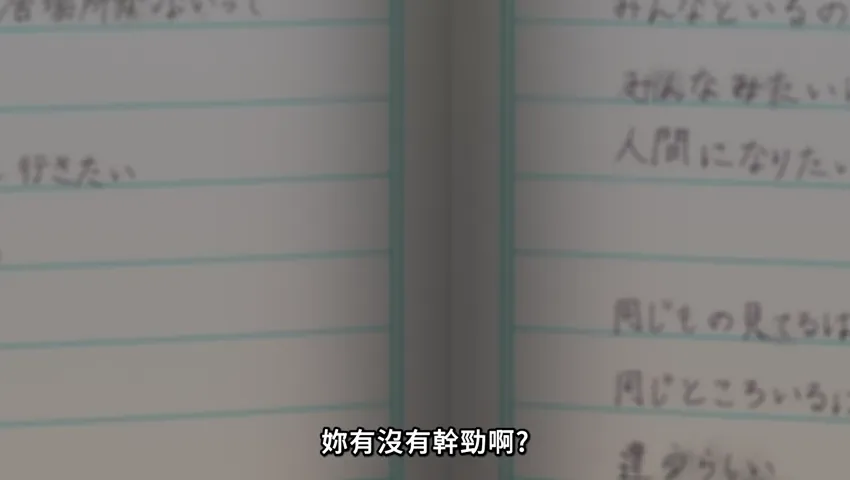 行きたい
みんなといるの
みんなみたいに
人間になりたい
同じもの見てるは
同じところいるに
違うらしい
妳有沒有幹勁啊?